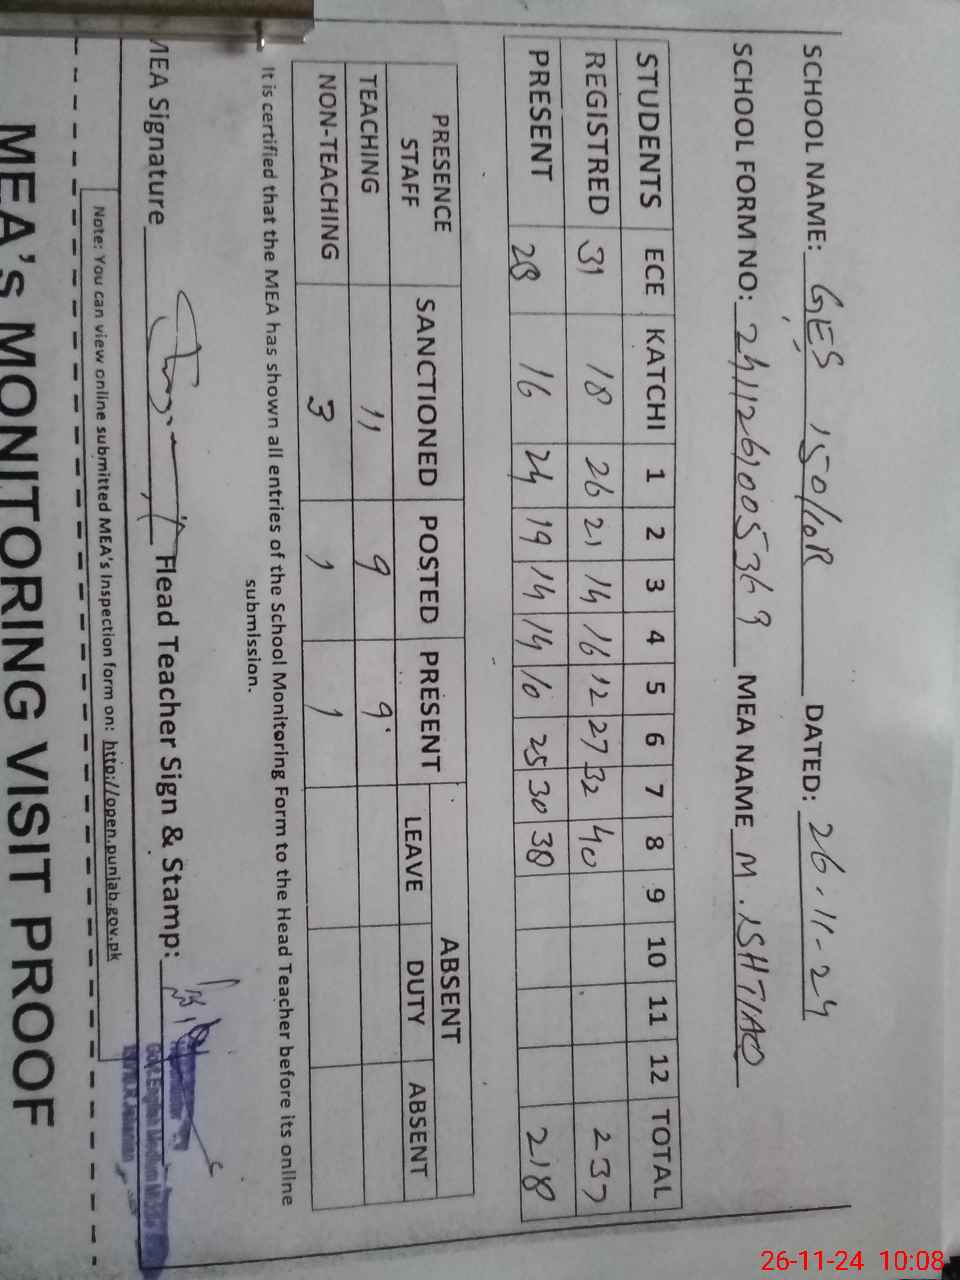 SCHOOL NAME: GES 150/10R DATED: 26-11-24
SCHOOL FORM NO: 2411261005369 MEA NAME M. ISHTIAQ
STUDENTS ECE KATCHI 1 2 3 4 5 6 7 8 9 10 11 12 TOTAL
REGISTRED 31 18 26 21 14 16 12 27 32 40 237
PRESENT 28 16 24 19 14 14 10 25 30 38 218
PRESENCE STAFF SANCTIONED POSTED PRESENT ABSENT
LEAVE DUTY ABSENT
TEACHING 11 9 9
NON-TEACHING 3 1 1
It is certified that the MEA has shown all entries of the School Monitoring Form to the Head Teacher before its online
submission.
MEA Signature Head Teacher Sign & Stamp:
Govt. English Medium
Note: You can view online submitted MEA's Inspection form on: http://open.punjab.gov.pk
MEA's MONITORING VISIT PROOF
26-11-24 10:08